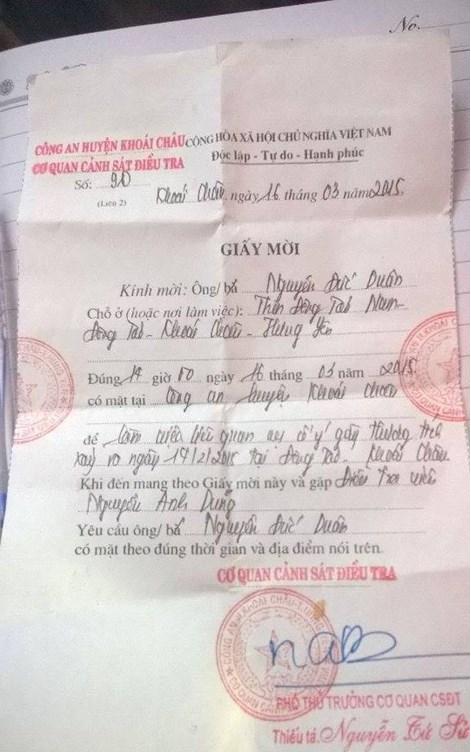 No.
CÔNG AN HUYỆN KHOÁI CHÂU CỘNG HÒA XÃ HỘI CHỦ NGHĨA VIỆT NAM
CƠ QUAN CẢNH SÁT ĐIỀU TRA Độc lập - Tự do - Hạnh phúc
Số: 90 Khoái Châu, ngày 16 tháng 03 năm 2015
(Liên 2)
GIẤY MỜI
Kính mời: Ông/ bà Nguyễn Đức Duân
Chỗ ở (hoặc nơi làm việc): Thôn Đông Tảo Nam
Đông Tảo - Khoái Châu - Hưng Yên
Đúng 14 giờ 00 ngày 16 tháng 03 năm 2015
có mặt tại Công an huyện Khoái Châu
để làm việc liên quan vụ cố ý gây thương tích
xảy ra ngày 17/2/2015 tại Đông Tảo - Khoái Châu
Khi đến mang theo Giấy mời này và gặp Điều tra viên
Nguyễn Anh Dũng
Yêu cầu ông/ bà Nguyễn Đức Duân
có mặt theo đúng thời gian và địa điểm nói trên.
CƠ QUAN CẢNH SÁT ĐIỀU TRA
PHÓ THỦ TRƯỞNG CƠ QUAN CSĐT
Thiếu tá. Nguyễn